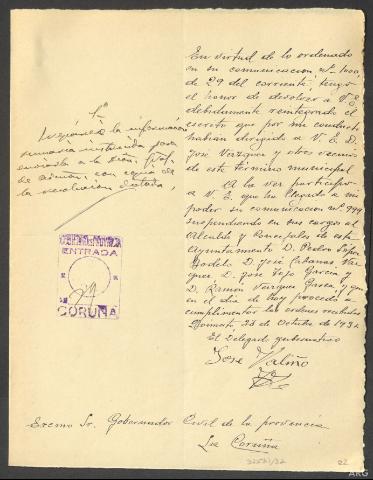 En virtud de lo ordenado
en su comunicacion nº 1001,
de 29 del corriente, tengo
el honor de devolver a V. E.
debidamente reintegrado el
escrito que por mi conducto
habian dirigido a V. E. D.
José Vazquez y otros vecinos
de este término municipal
A la vez participo
a V. E. que ha llegado a mi
poder su comunicacion nº 999
suspendiendo en sus cargos al
Alcalde y Concejales de este
Ayuntamiento D. Pedro
D. José Cabanas
D. José Tojo Garcia y
D. Ramón Vazquez Garcia, y que
en el dia de hoy procedo a
cumplimentar las ordenes recibidas
de Octubre de 193
El Delegado gubernativo
José Valiño
la información
a la
con copia de
la
ENTRADA
CORUÑA
Excmo Sr. Gobernador Civil de la provincia
La Coruña
22
ARG